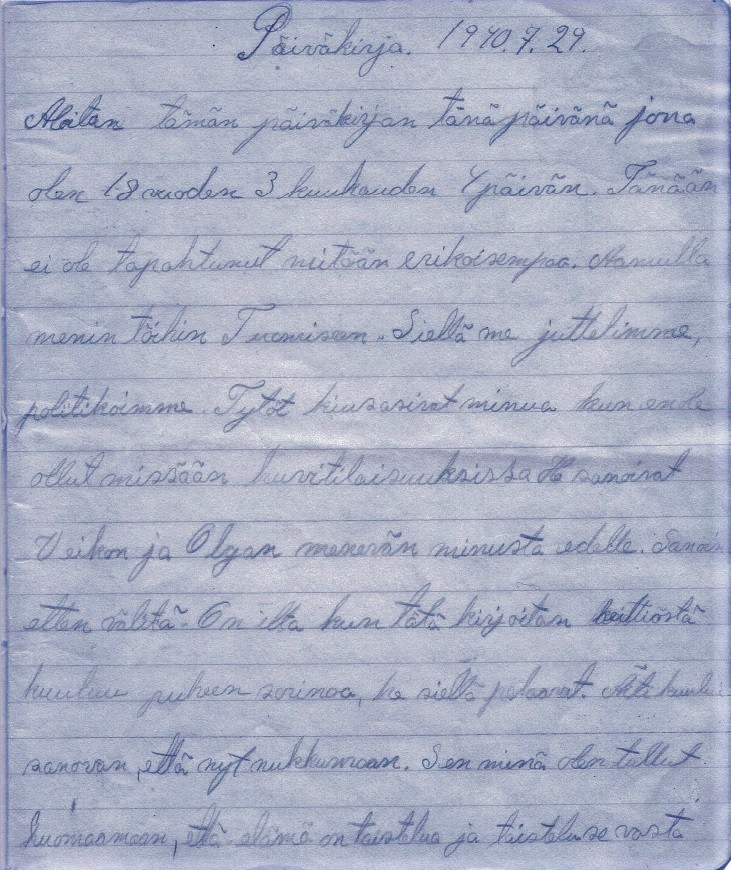 Päiväkirja. 1940.7.29.
Aloitan tämän päiväkirjan tänä päivänä jona
olen 18 vuoden 3 kuukauden 4 päivän. Tänään
ei ole tapahtunut mitään erikoisempaa. Aamulla
menin töihin Tuomiseen. Siellä me juttelimme,
politikoimme. Tytöt kiusasivat minua kun en ole
ollut missään huvitilaisuuksissa He sanoivat
Veikon ja Olgan menevän minusta edelle. Sanoin
etten välitä. On ilta kun tätä kirjoitan keittiöstä
kuuluu puheen sorinaa, he siellä pelaavat. Äiti kuuluu
sanovan, että nyt nukkumaan. Sen minä olen tullut
huomaamaan, että elämä on taistelua ja taistelu se vasta